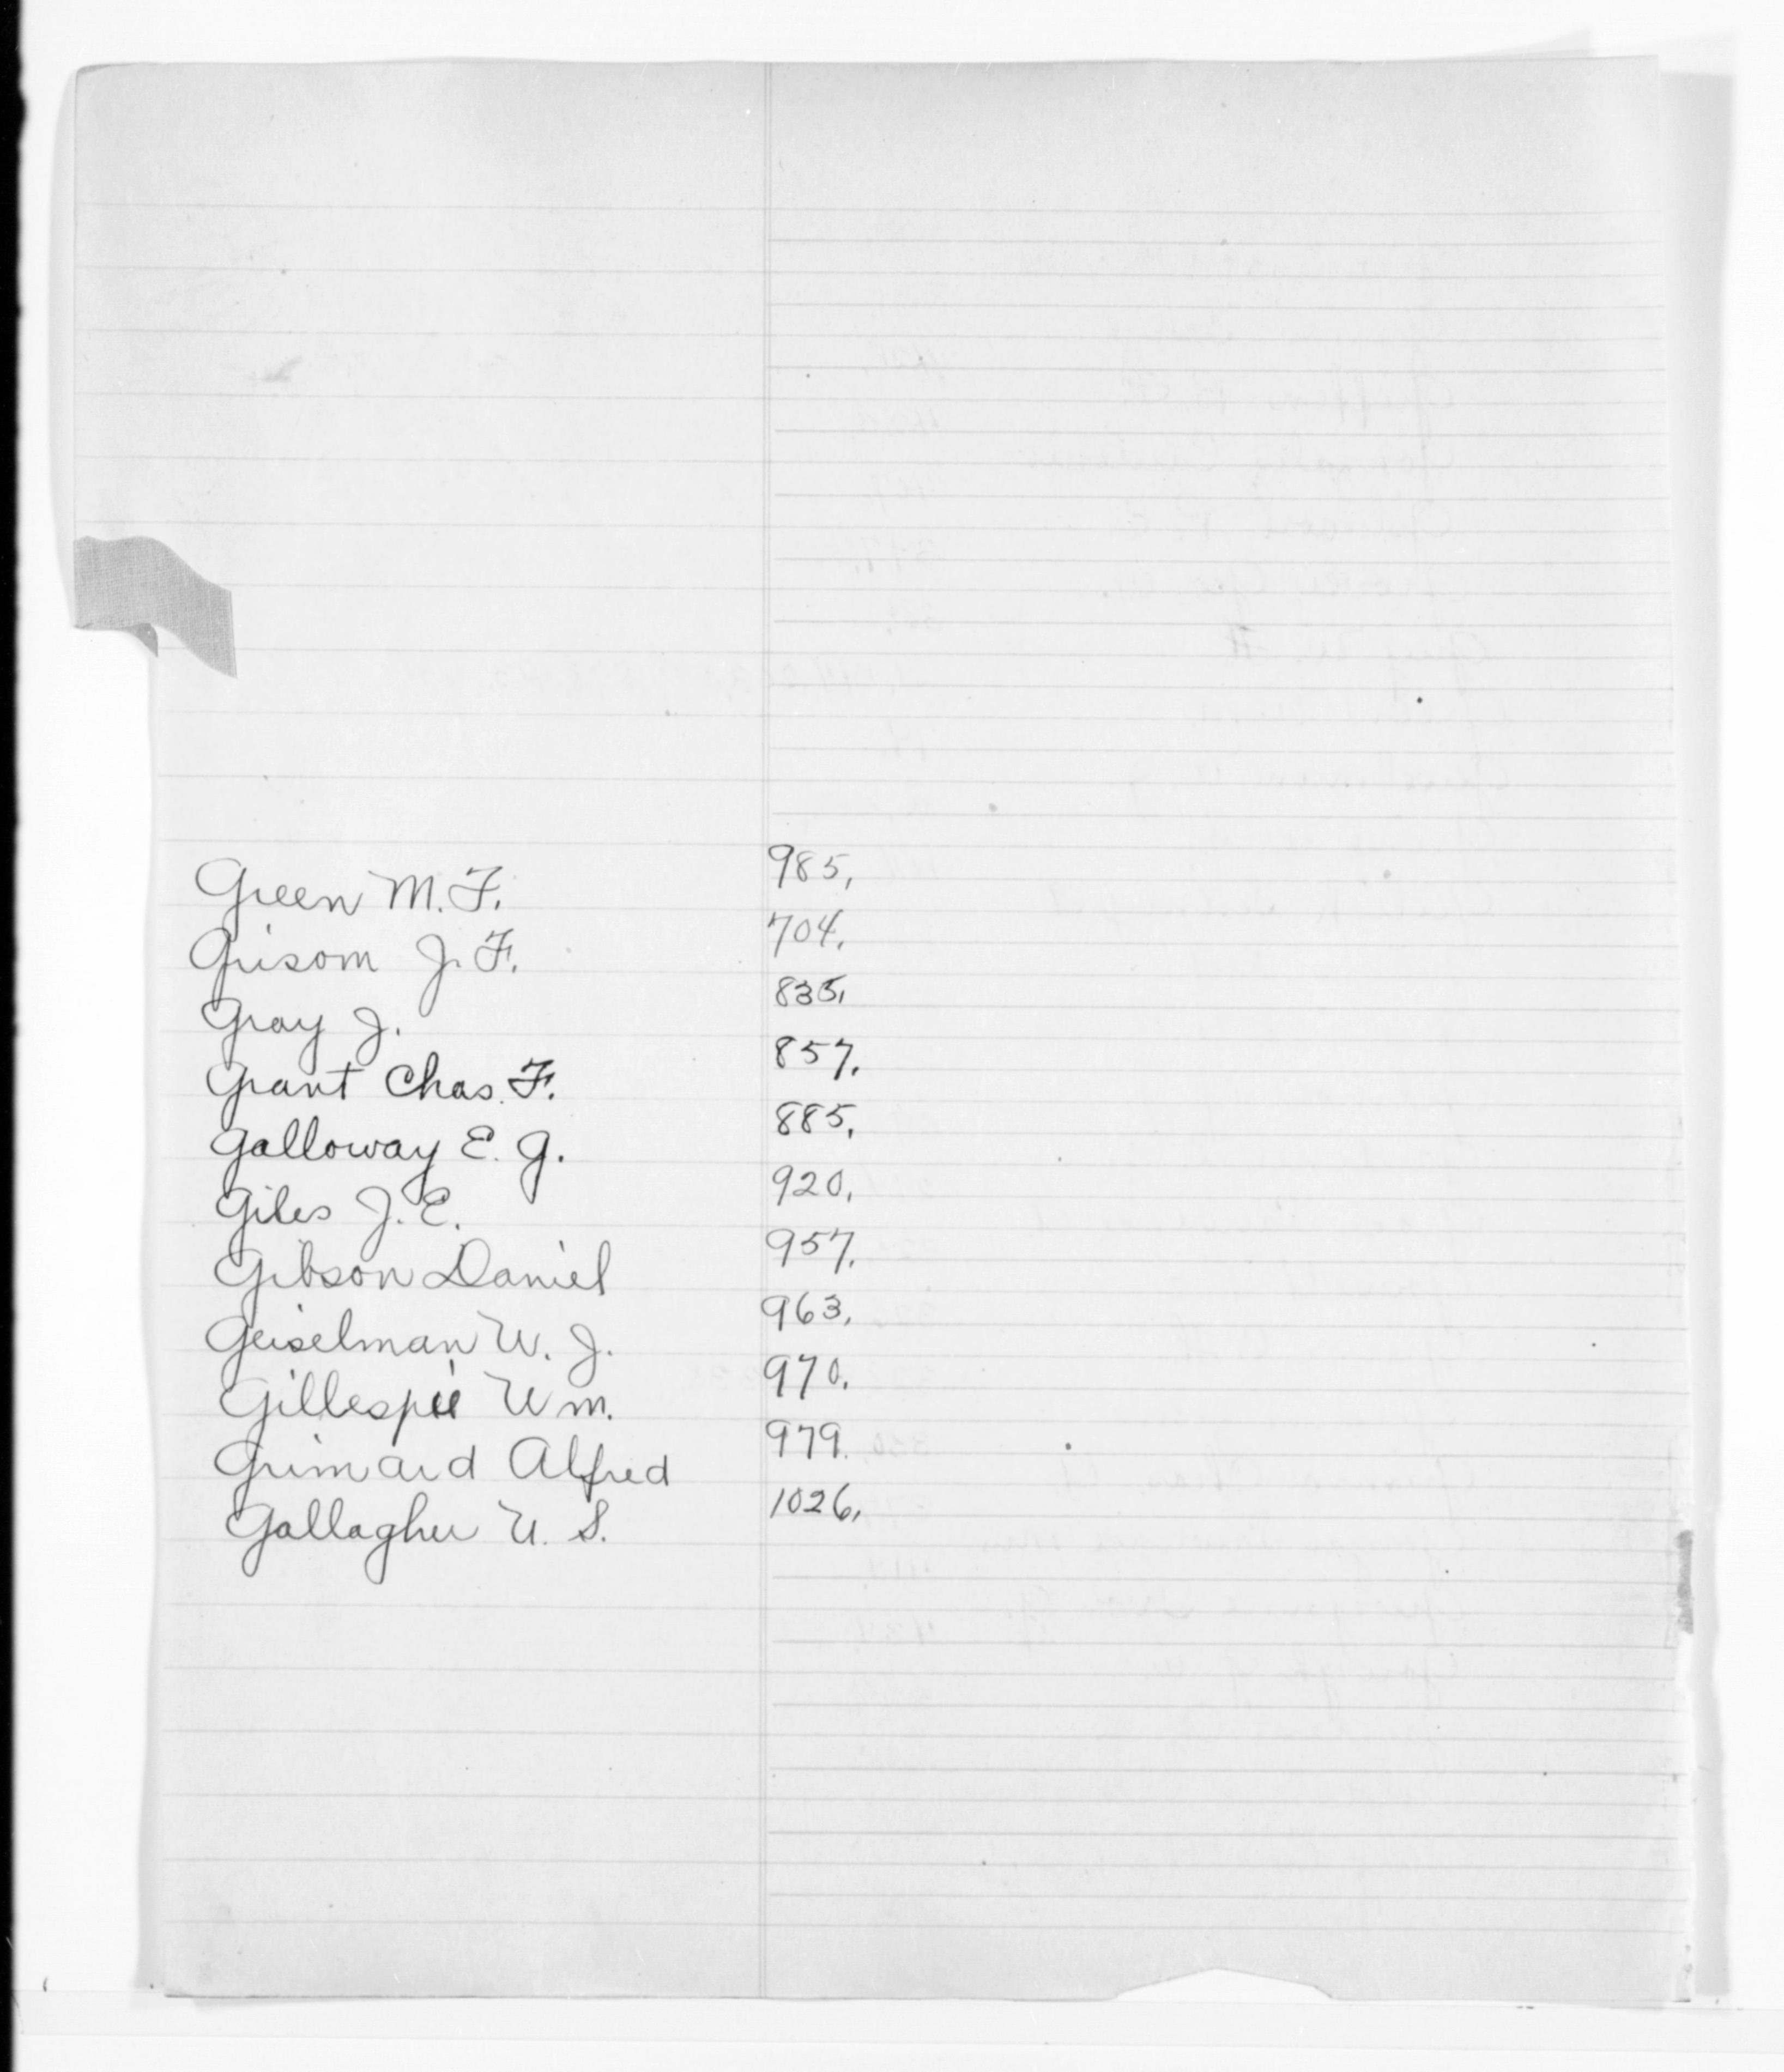 Green M. F. 985,
Grisom J. F. 704,
Gray J. 835,
Grant Chas. F. 857,
Galloway E. G. 885,
Giles J. E. 920,
Gibson Daniel 957,
Geiselman W. J. 963,
Gillespie Wm. 970,
Grimard Alfred 979.
Gallagher U. S. 1026,